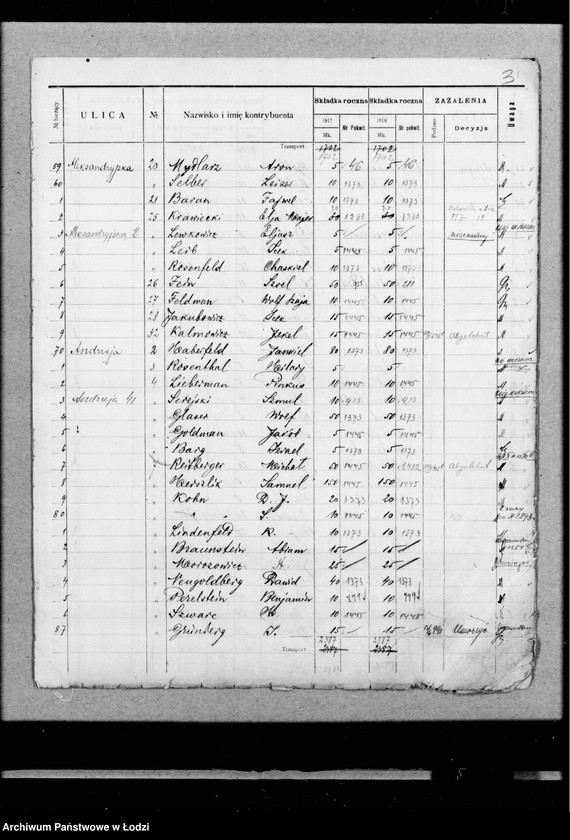 3
№ bieżący ULICA № Nazwisko i imię kontrybuenta Składka roczna Składka roczna ZAŻALENIA Uwaga
1917 Mk. Nr Pokwit. 1918 Mk. Nr pokwit. Podano Decyzja
Transport 1702 1702
1702 1702
59 Aleksandryjska 20 Mydlarz Aron 5 46 5 46
60 " Selber Leizer 10 1373 10 1373
1 21 Baran Fajwel 10 1373 10 1373
2 25 Krawiecki Elja Majer 20 1360 20 1360
3 Alexandryjska " Lewkowicz Eljasz 5 5
4 " Leib Icek 5 1445 5 1445
5 " Rosenfeld Chaskiel 10 1373 10 1373
6 26 Fein Szoel 50 50 281
7 27 Feldman Wolf Szaja 10 1445 10 1445
8 28 Jakubowicz Icek 15 1445 15 1445
9 32 Kalmowicz Jekel 15 1445 15 1445
70 Andrzeja 2 Haberfeld Daniel 80 1373 80 1373
1 3 Rosenthal Hilary 5 5
2 4 Lieberman Pinkus 10 1445 10 1445
3 Andrzeja 41 " Serejski Szmul 10 913 10 913
4 " Glaser Wolf 50 1373 50 1373
5 " Goldman Jakob 5 1445 5 1445
6 " Barg Izrael 5 1373 5 1373
7 " Reitberger Michał 50 1445 50
8 " Samuel 150 1445 150 1445
9 " Kohn D. J. 20 1373 20 1373
80 " " S. 10 1445 10 1445
1 " Lindenfeld R. 10 1373 10 1373
2 " Braunstein Abram 15 15
3 " Morozowicz A. 25 25
4 " Neugoldberg Dawid 40 1373 40 1373
5 " Perelstein Benjamin 10 10
6 " Szwarc 10 1445 10 1445
87 " Grünberg S. 15 15 Umorzyć
2387 2387
Transport
Archiwum Państwowe w Łodzi